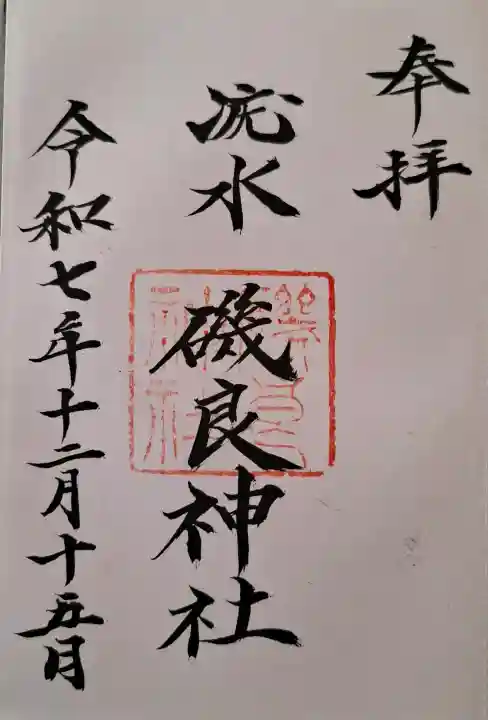 奉拝
疣水
磯良神社
令和七年十二月十五日